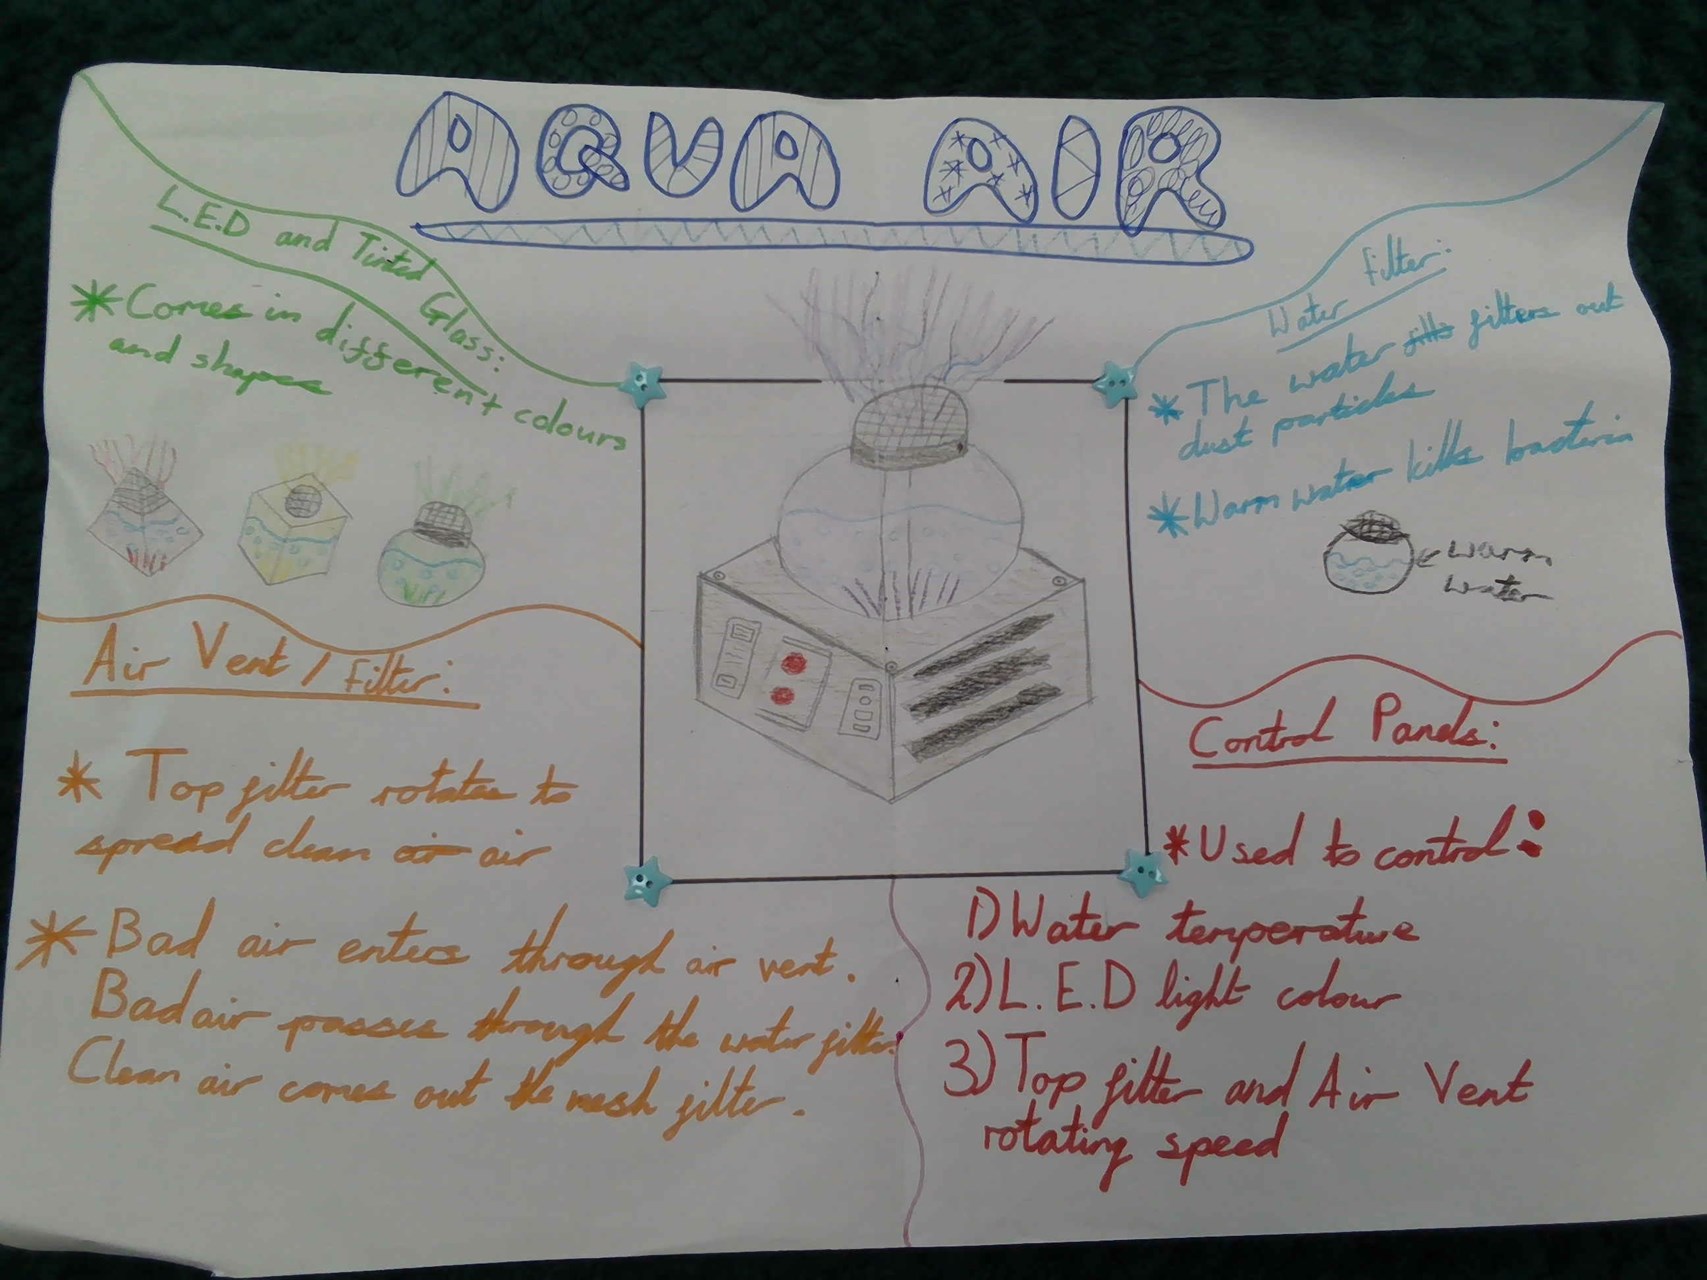 AQUA AIR
L.E.D and Tinted
Glass:
* Comes in different colours
and shapes
Water Filter:
* The water filters out
dust particles
* Warm water kills bacteria
Warm
water
Air Vent / Filter:
* Top filter rotates to
spread clean air air
* Bad air enters through air vent.
Bad air passes through the water filter.
Clean air comes out the mesh filter.
Control Panels:
* Used to control:
1) Water temperature
2) L.E.D light colour
3) Top filter and Air Vent
rotating speed